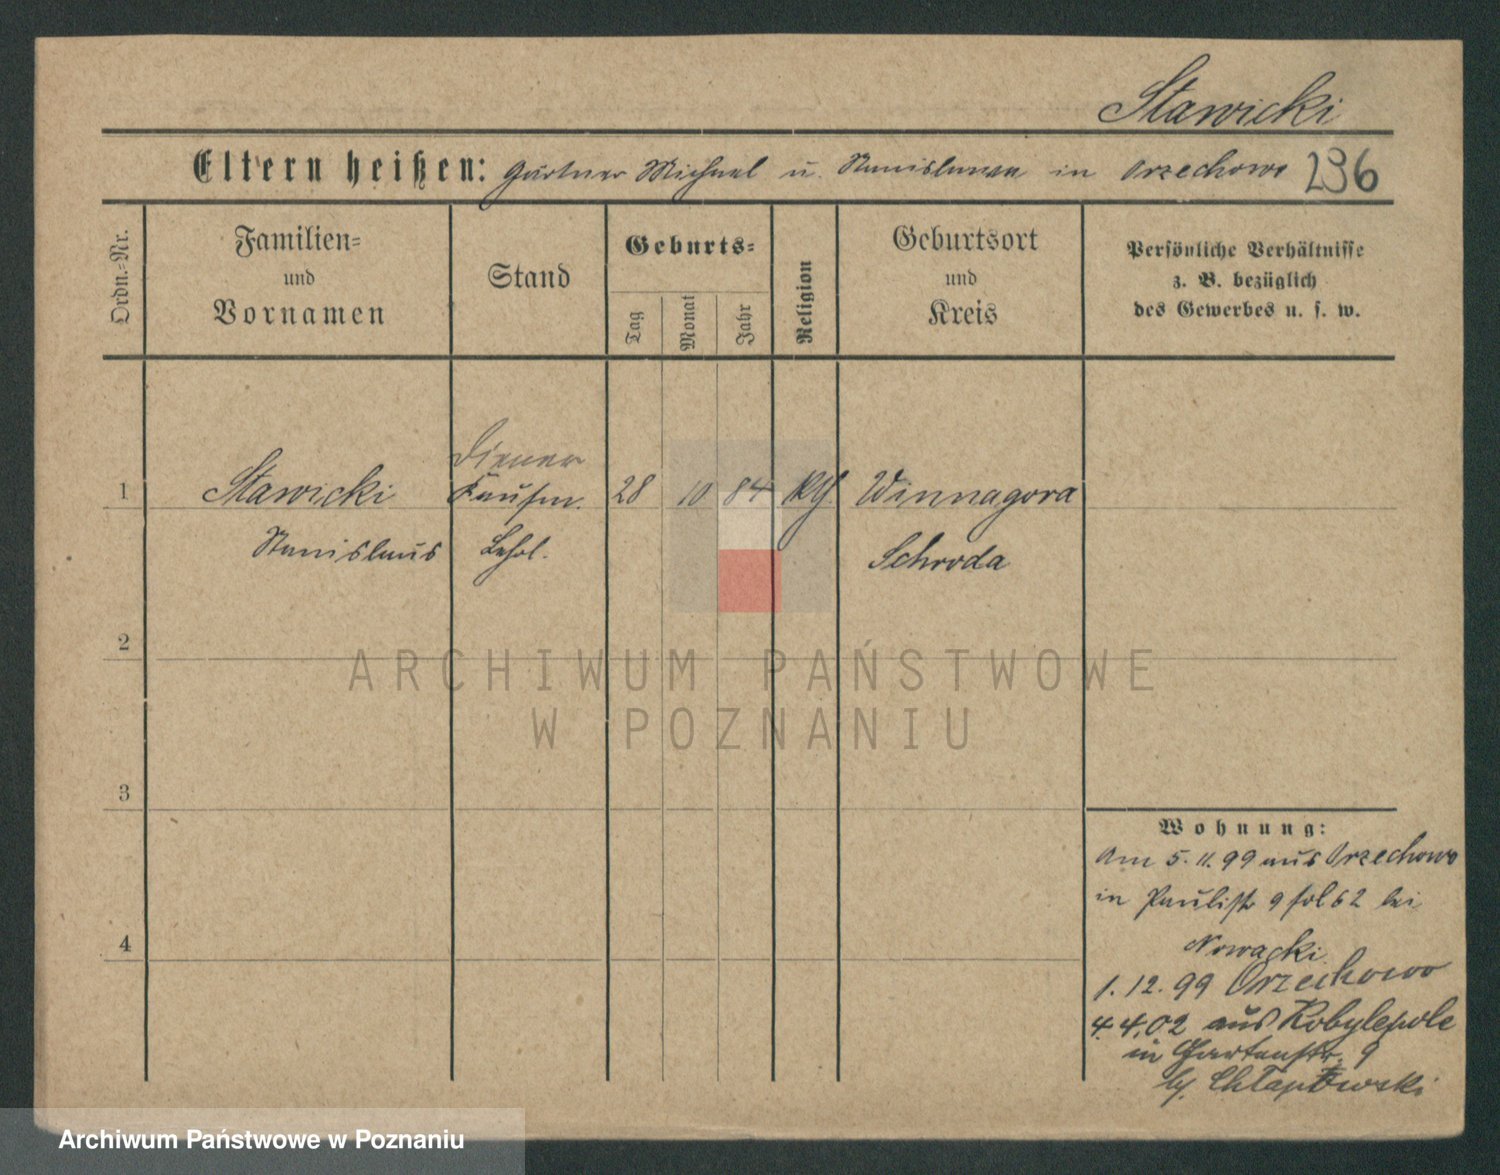 Stawicki
Eltern heißen: Gärtner Michael u. Stanislawa in Orzechowo 236
Ordn.-Nr.
Familien-
und
Vornamen
Stand
Geburts-
Tag
Monat
Jahr
Religion
Geburtsort
und
Kreis
Persönliche Verhältnisse
z. B. bezüglich
des Gewerbes u. s. w.
Diener
1 Stawicki Kaufm. 28 10 84 Winnagora
Stanislaus Lehrl. Schroda
2
3
4
Wohnung:
Am 5.11.99 aus Orzechowo
in Paulistr 9 bei
Nowacki
1.12.99 Orzechowo
4.4.02 aus Kobylepole
in Gartenstr. 9
Chłapowski
ARCHIWUM PAŃSTWOWE
W POZNANIU
Archiwum Państwowe w Poznaniu